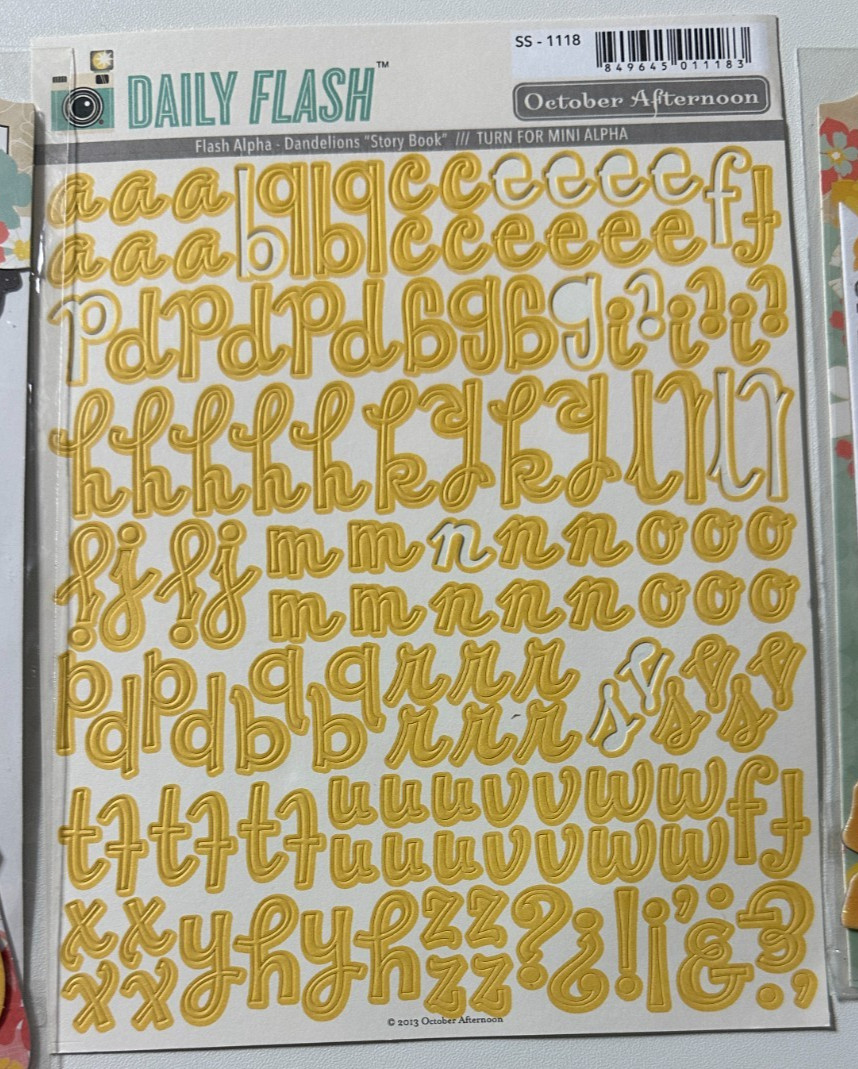 SS - 1118
8 49645 01118 3
DAILY FLASH™
October Afternoon
Flash Alpha - Dandelions "Story Book" /// TURN FOR MINI ALPHA
a a a b q b q c c e e e e f f
a a a c c e e e e
p d p d p d g g g g i i i
h h h h h k y k y l l l l
j j m m n n n o o o
m m n n n o o o
p d p d b q b q r r r s s s
r r r s s s
t t t t t t u u u v v w w f f
u u u v v w w
x x y h y h z z ? ¿ ! ¡ ' &
x x z z ,
© 2013 October Afternoon